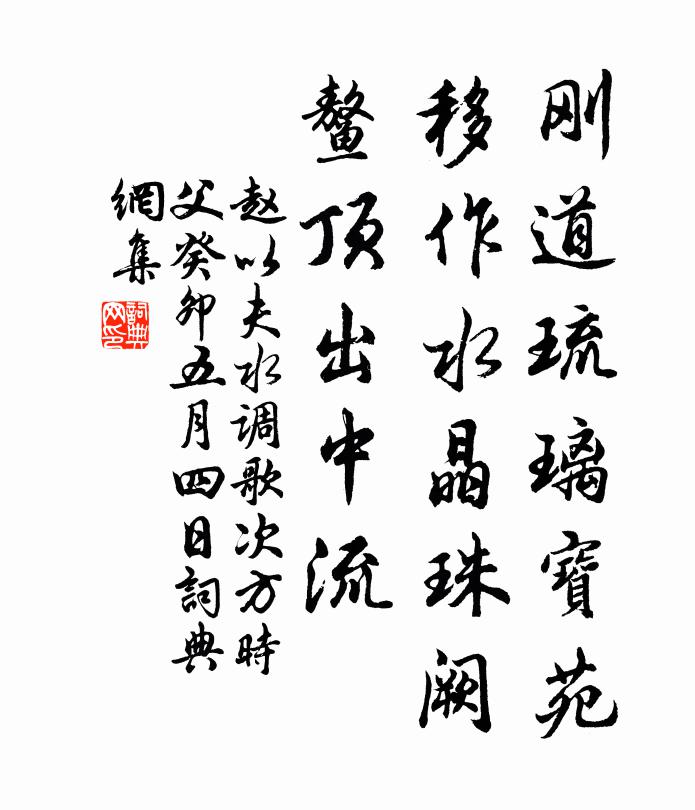 刚道琉璃寶苑
移作水晶珠阙
鳌顶出中流
赵以夫水调歌次方時
父癸卯五月四日詞典
網集
詞典
网印